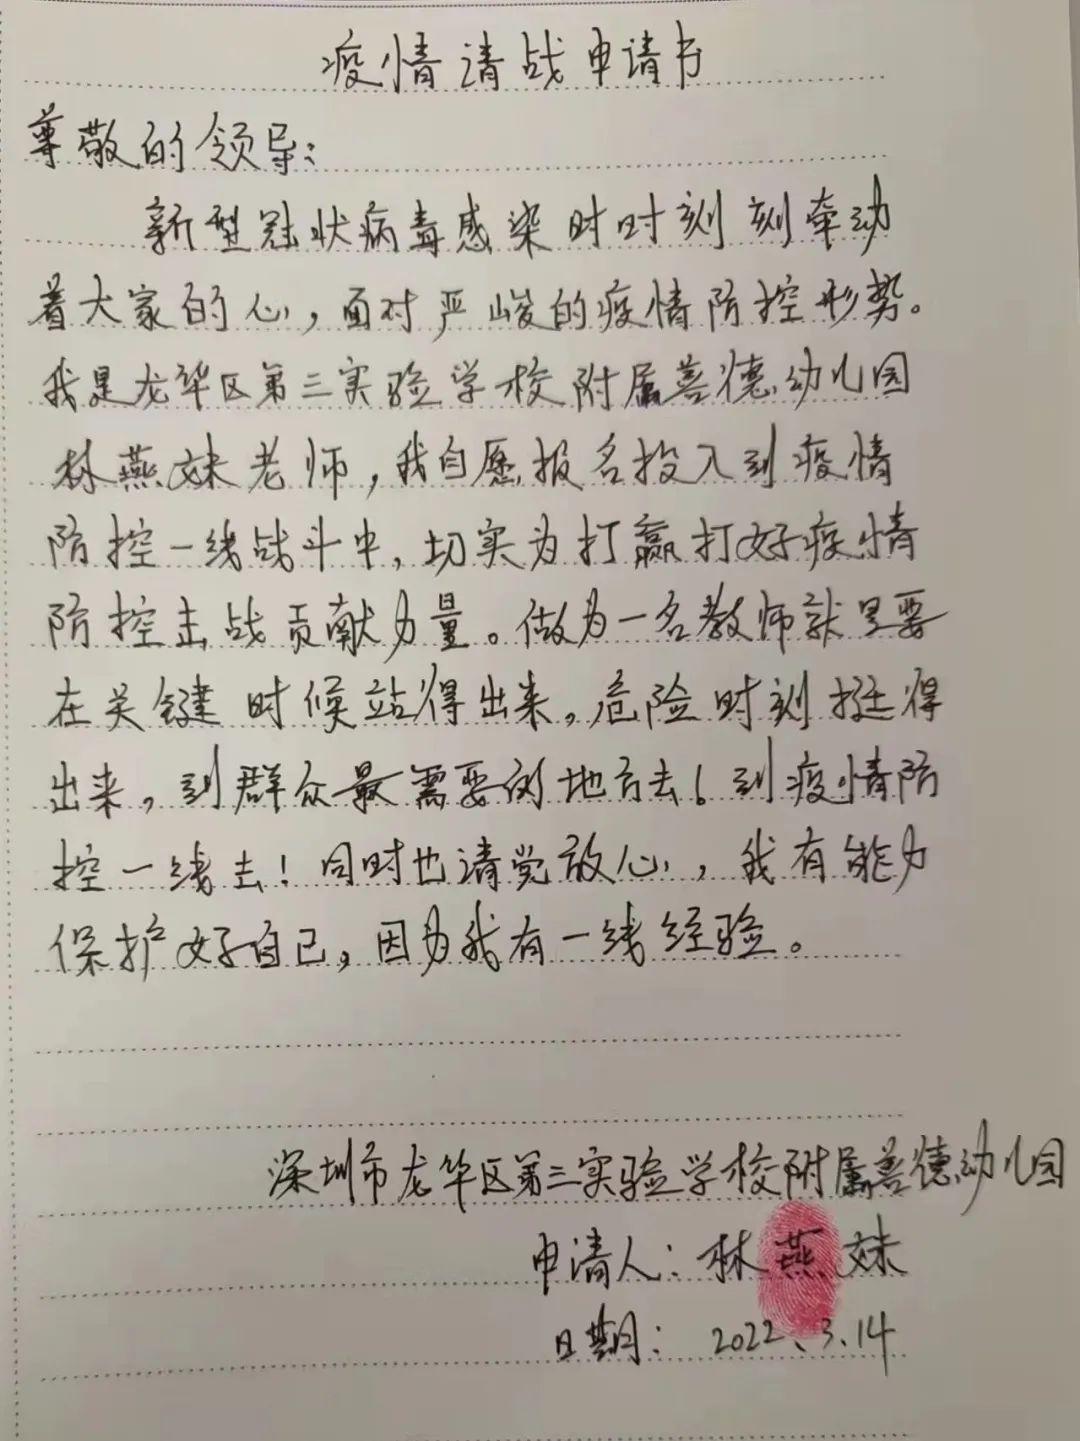 疫情请战申请书
尊敬的领导：
新型冠状病毒感染时时刻刻牵动
着大家的心，面对严峻的疫情防控形势。
我是龙华区第三实验学校附属善德幼儿园
林燕妹老师，我自愿报名投入到疫情
防控一线战斗中，切实为打赢打好疫情
防控击战贡献力量。做为一名教师就是要
在关键时候站得出来。危险时刻挺得
出来，到群众最需要的地方去！到疫情防
控一线去！同时也请党放心，我有能力
保护好自己，因为我有一线经验。
深圳市龙华区第三实验学校附属善德幼儿园
申请人：林燕妹
日期：2022.3.14